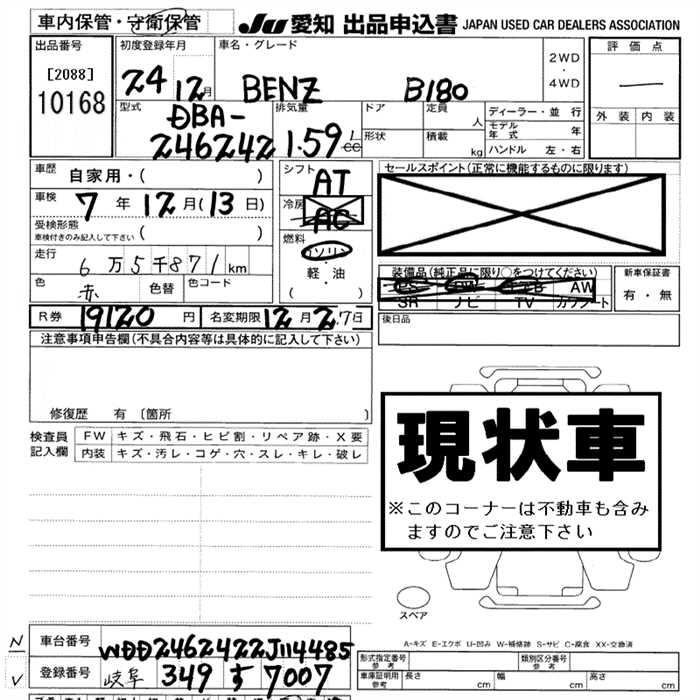 車内保管・守衛保管
JU 愛知 出品申込書 JAPAN USED CAR DEALERS ASSOCIATION
出品番号
[2088]
10168
初度登録年月
24 12月
車名・グレード
BENZ B180
2WD
・
4WD
評価点
外装 内装
型式
DBA-
246242
排気量
1.59 L
cc
ドア
形状
定員
人
積載
kg
ディーラー・並行
モデル
年式 年
ハンドル 左・右
車歴
自家用・( )
車検
7年12月(13日)
受検形態
車検付きのみ記入して下さい
( )
走行
6万5千871km
色
赤
色替
色コード
シフト
AT
冷房
AC
燃料
ガソリン
・
軽・油
( )
セールスポイント(正常に機能するものに限ります)
装備品(純正品に限り○をつけてください)
SR ナビ TV カワシート
AW
新車保証書
有・無
後日品
R券 19120円
名変期限 12月27日
注意事項申告欄(不具合内容等は具体的に記入して下さい)
修復歴 有 〔箇所 〕
検査員
記入欄
FW キズ・飛石・ヒビ割・リペア跡・X要
内装 キズ・汚レ・コゲ・穴・スレ・キレ・破レ
現状車
※このコーナーは不動車も含み
ますのでご注意下さい
スペア
A-キズ E-エクボ U-凹み W-補修跡 S-サビ C-腐食 XX-交換済
N
車台番号
WDD2462422J114485
V
登録番号
岐阜 349 す 7007
形式指定番号
参考
類別区分番号
参考
車庫証明用
参考
長さ cm
幅 cm
高さ cm